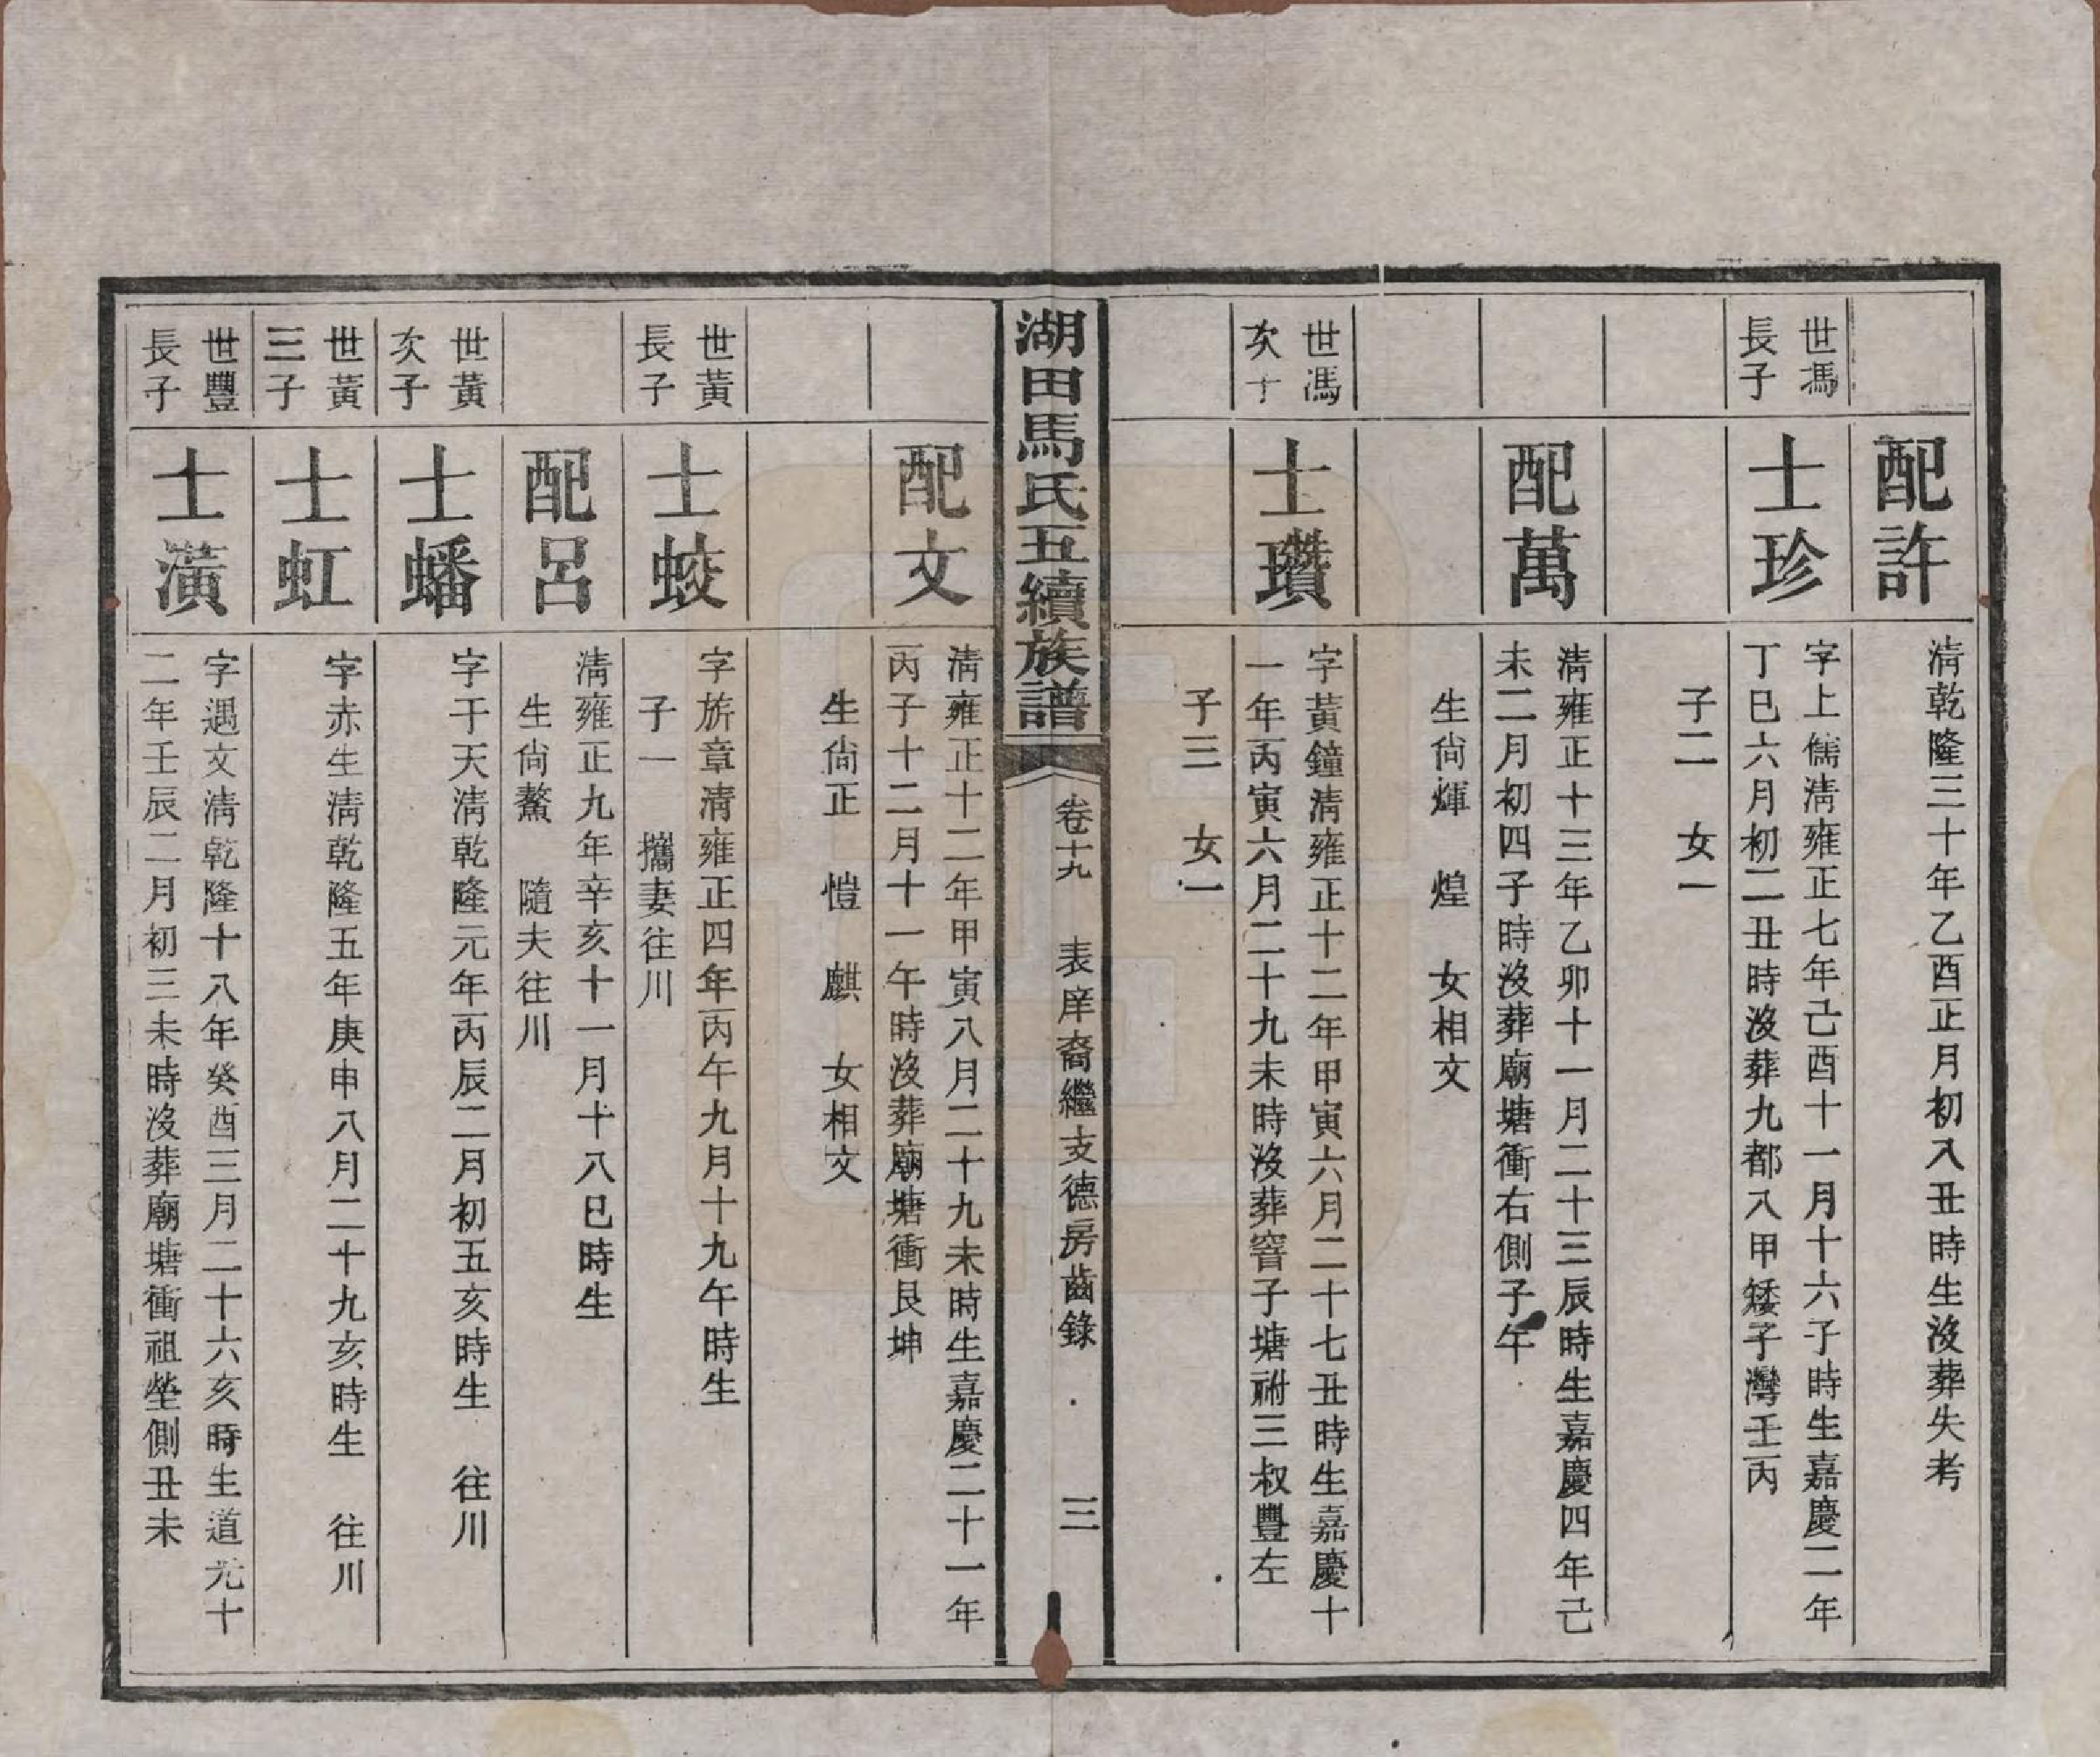 配許
淸乾隆三十年乙酉正月初八丑時生沒葬失考
世馮
長子
士珍
字上儒淸雍正七年己酉十一月十六子時生嘉慶二年
丁巳六月初二丑時沒葬九都八甲矮子灣壬丙
子二 女一
配萬
淸雍正十三年乙卯十一月二十三辰時生嘉慶四年己
未二月初四子時沒葬廟塘衝右側子午
生尙煇 煌 女相文
世馮
次子
士瓚
字黃鐘淸雍正十二年甲寅六月二十七丑時生嘉慶十
一年丙寅六月二十九未時沒葬窨子塘祔三叔豐左
子三 女一
湖田馬氏五續族譜
卷十九 表庠裔繼支德房齒錄 三
配文
淸雍正十二年甲寅八月二十九未時生嘉慶二十一年
丙子十二月十一午時沒葬廟塘衝艮坤
生尙正 愷 麒 女相文
世黃
長子
士蛟
字旂章淸雍正四年丙午九月十九午時生
子一 攜妻往川
配呂
淸雍正九年辛亥十一月十八巳時生
生尙鰲 隨夫往川
世黃
次子
士蟠
字于天淸乾隆元年丙辰二月初五亥時生 往川
世黃
三子
士虹
字赤生淸乾隆五年庚申八月二十九亥時生 往川
世豐
長子
士潢
字遇文淸乾隆十八年癸酉三月二十六亥時生道光十
二年壬辰二月初三未時沒葬廟塘衝祖塋側丑未